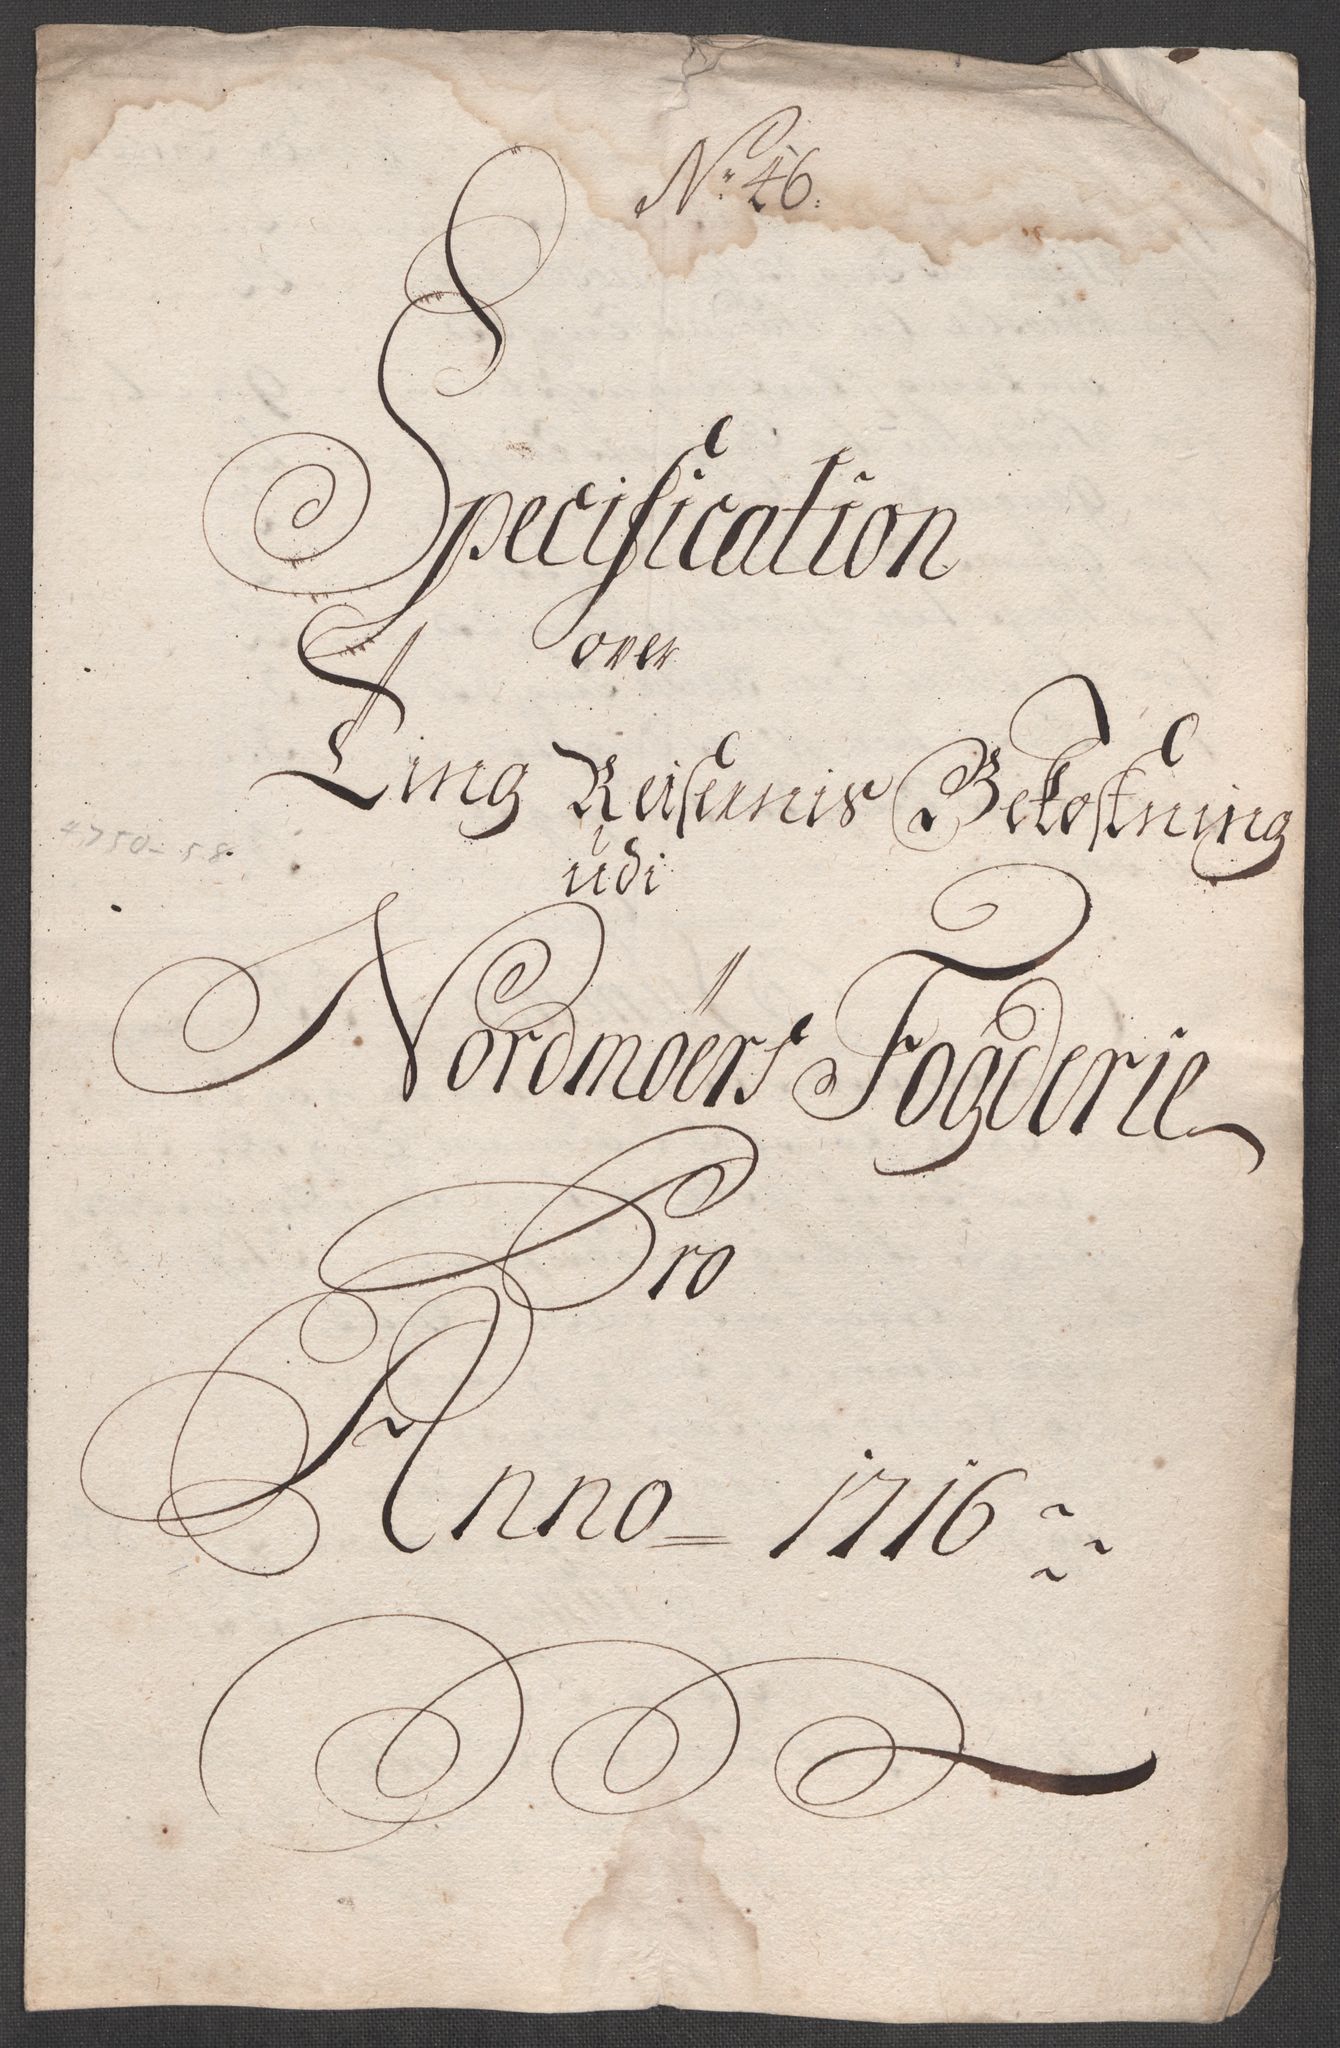 No 46.
Specification
over
Ting Reisernis Bekostning
udi
4750-58.
Nordmöers Fogderie
Pro
Anno = 1716